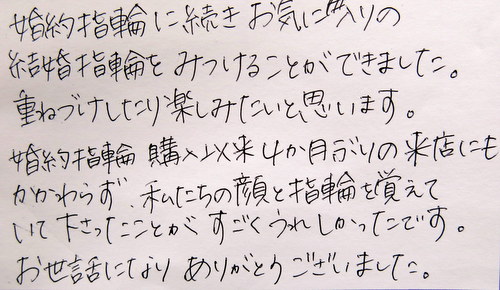 婚約指輪に続きお気に入りの
結婚指輪をみつけることができました。
重ねづけしたり楽しみたいと思います。
婚約指輪購入以来4か月ぶりの来店にも
かかわらず、私たちの顔と指輪を覚えて
いて下さったことがすごくうれしかったです。
お世話になりありがとうございました。